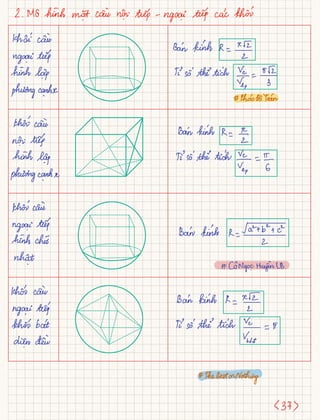 2. MS hình mặt cầu nội tiếp - ngoại tiếp các khối
Khối cầu
ngoại tiếp
hình lập
phương cạnh x
Bán kính R = x√2/2
Tỉ số thể tích Vc/Vlp = π√2/3
Khối cầu
nội tiếp
hình lập
phương cạnh x
Bán kính R = x/2
Tỉ số thể tích Vc/Vlp = π/6
Khối cầu
ngoại tiếp
hình chữ
nhật
Bán kính R = √a²+b²+c²/2
# Cô Ngọc Huyền LB
Khối cầu
ngoại tiếp
khối bát
diện đều
Bán kính R = x√2/2
Tỉ số thể tích Vc/ = π
# The best or Nothing
<37>